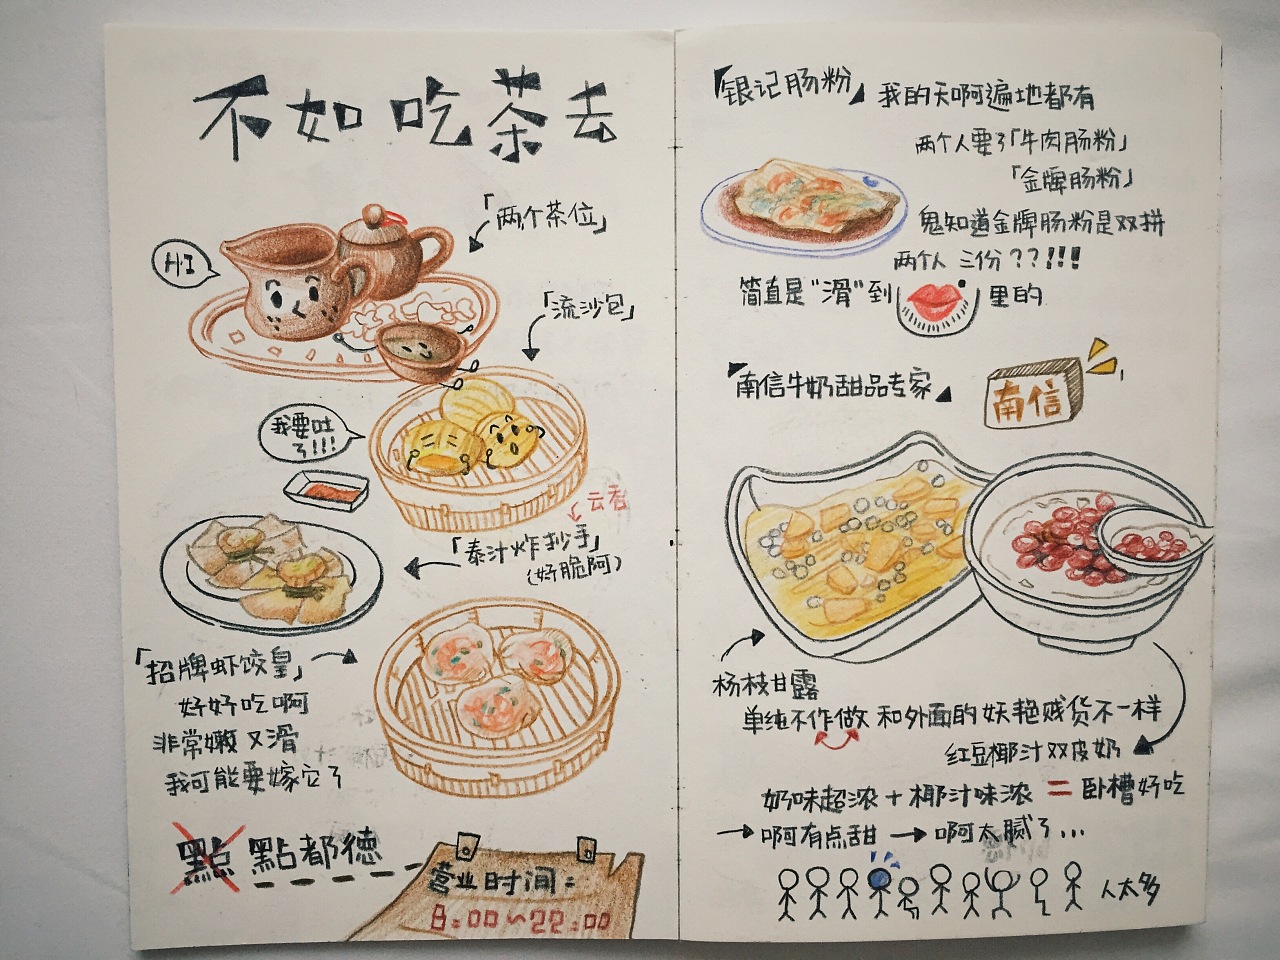 不如吃茶去
「两个茶位」
HI
「流沙包」
我要吐
了!!!
云吞
「泰汁炸抄手」
(好脆阿)
「招牌虾饺皇」
好好吃啊
非常嫩又滑
我可能要嫁它了
點 點都德
营业时间:
8:00~22:00
「银记肠粉」 我的天啊遍地都有
两个人要了「牛肉肠粉」
「金牌肠粉」
鬼知道金牌肠粉是双拼
两个人 三份??!!!
简直是"滑"到 里的
「南信牛奶甜品专家」
南信
杨枝甘露
单纯不作做 和外面的妖艳贱货不一样
红豆椰汁双皮奶
奶味超浓+椰汁味浓 = 卧槽好吃
→啊有点甜→啊太腻了...
人太多